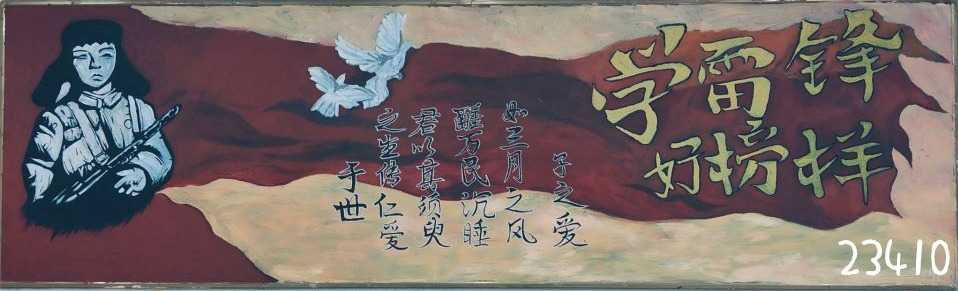 学雷锋
好榜样
子之爱
如三月之风
醒万民沉睡
君以其须臾
之生传仁爱
于世
23410